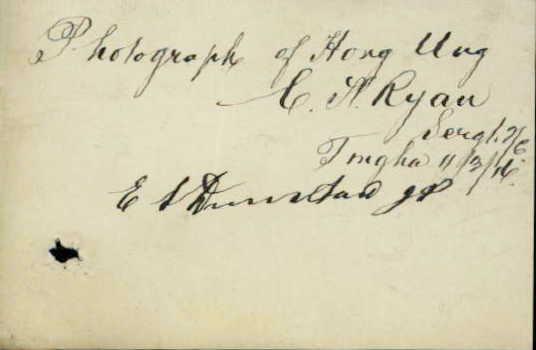 Photograph of Hong Ung
C. A. Ryan
Sergt. 2/c
Tingha 11/3/16.
E S JP